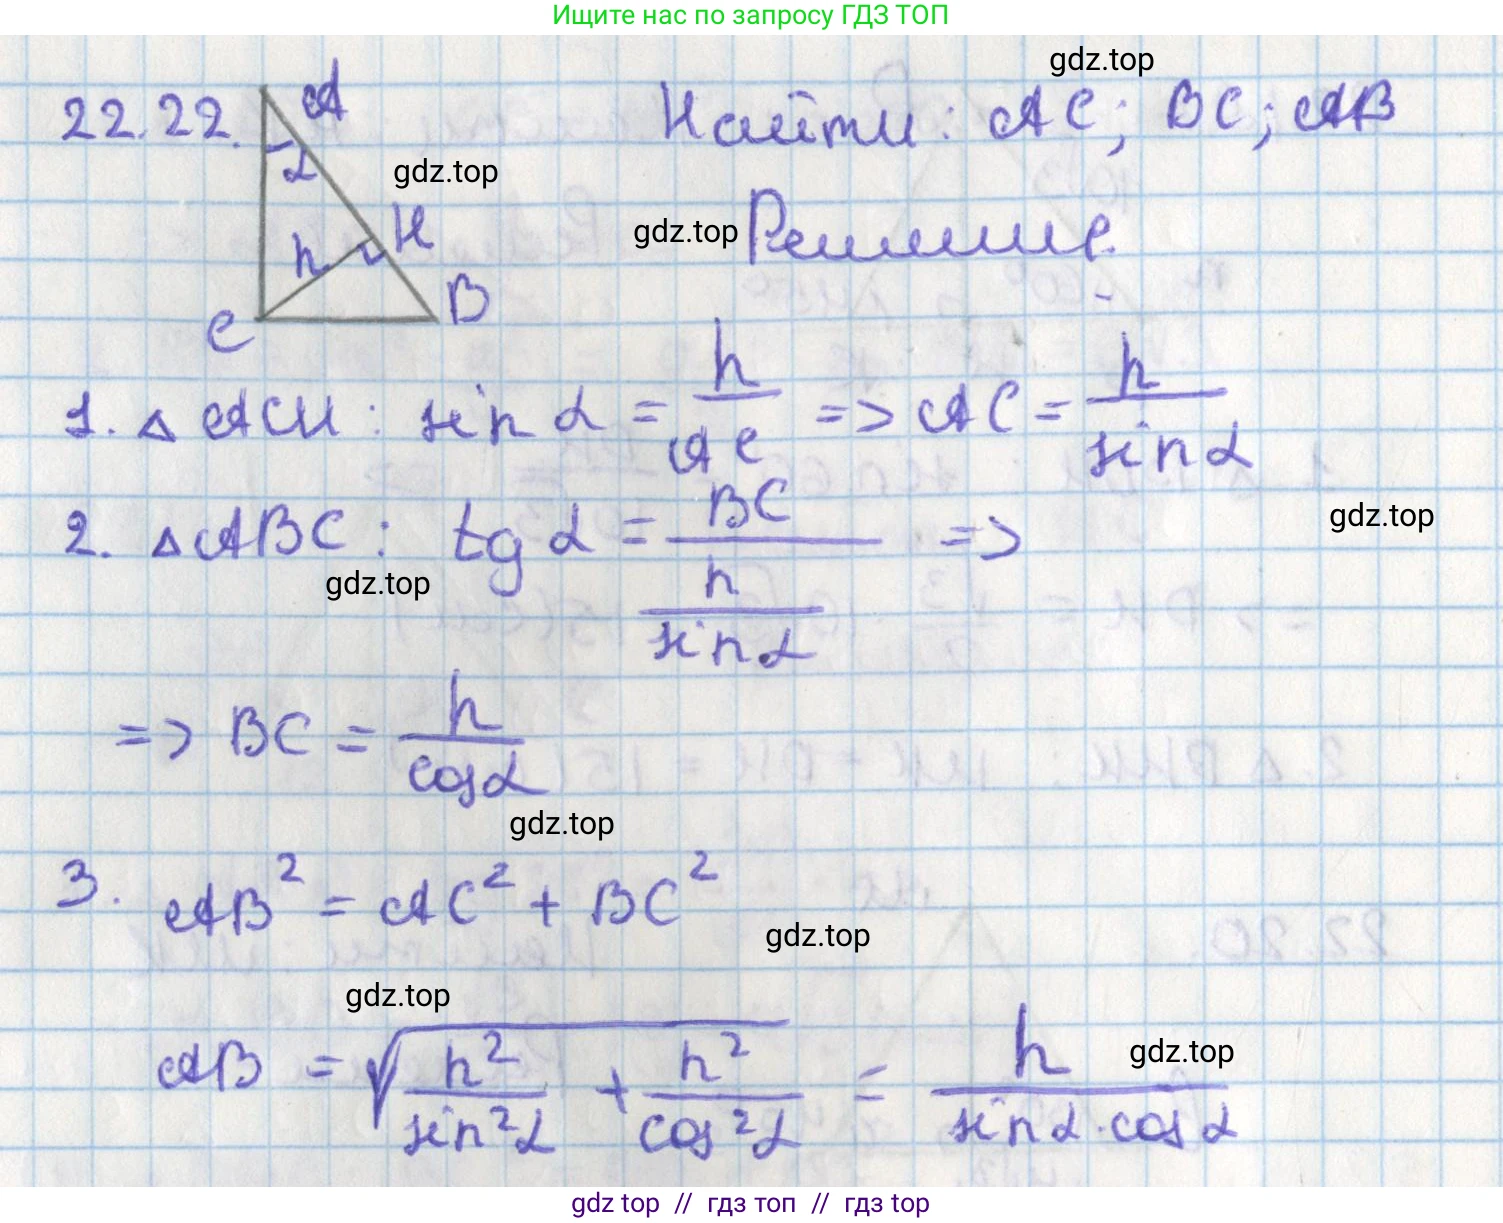 Ищите нас по запросу ГДЗ ТОП
gdz.top
22.22. A Найти: AC; BC; AB
α
gdz.top
H
gdz.top Решение.
h
C B
1. △ ACH: sin α = h/AC => AC = h/sin α
gdz.top
2. △ ABC: tg α = BC/(h/sin α) =>
gdz.top
=> BC = h/cos α
gdz.top
3. AB² = AC² + BC²
gdz.top
gdz.top
AB = √(h²/sin²α + h²/cos²α) = h/(sin α · cos α)
gdz.top
gdz top // гдз топ // гдз top